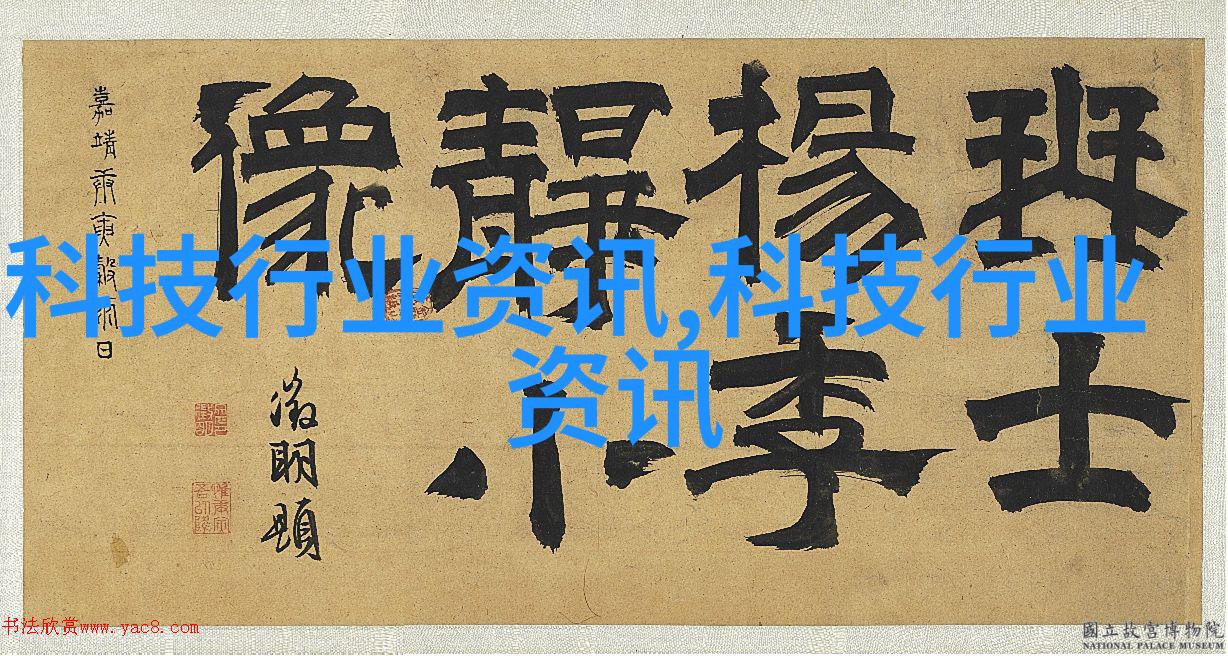 琴士
楊季
靜小
像
嘉靖庚寅穀日
徵明題
科技行业资讯,科技行业
资讯
书法欣赏www.yac8.com
國立故宮博物院
NATIONAL PALACE MUSEUM